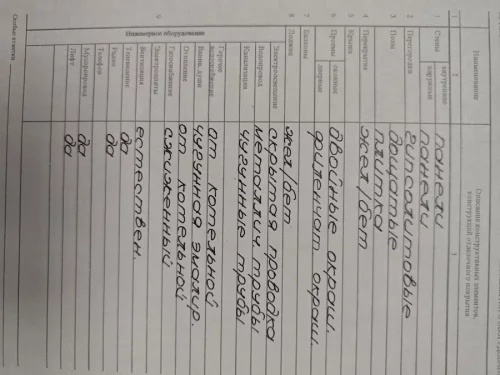 Наименование
Описание конструктивных элементов, конструкций отделочного покрытия
1
2
3
1 Стены наружные панели
внутренние панели
2 Перегородки гипсолитовые
3 Полы дощатые
плитка
4 Перекрытия жел/бет
5 Крыша
6 Проемы оконные двойные окраш.
дверные филенчат окраш.
7 Балконы
8 Лоджии жел/бет
9
Инженерное оборудование
Электроосвещение скрытая проводка
Водопровод металлич. трубы
Канализация чугунные трубы
Горячее водоснабжение от котельной
Ванна, душ чугунная эмалир.
Отопление от котельной
Газоснабжение сжиженный
Электроплиты
Вентиляция естествен.
Телевидение да
Радио да
Телефон
Мусоропровод да
Лифт да
Особые отметки